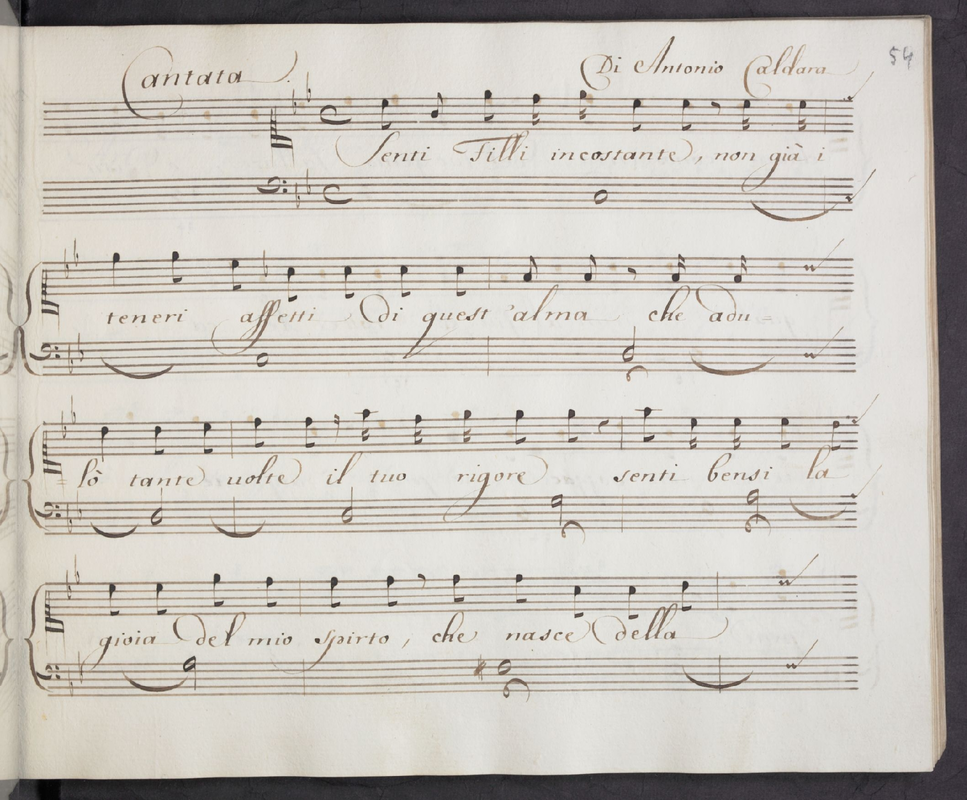 Cantata. Di Antonio Caldara 54
Senti Filli incostante, non già i
teneri affetti di quest'alma che adu=
=lò tante uolte il tuo rigore senti bensi la
gioia del mio spirto, che nasce della